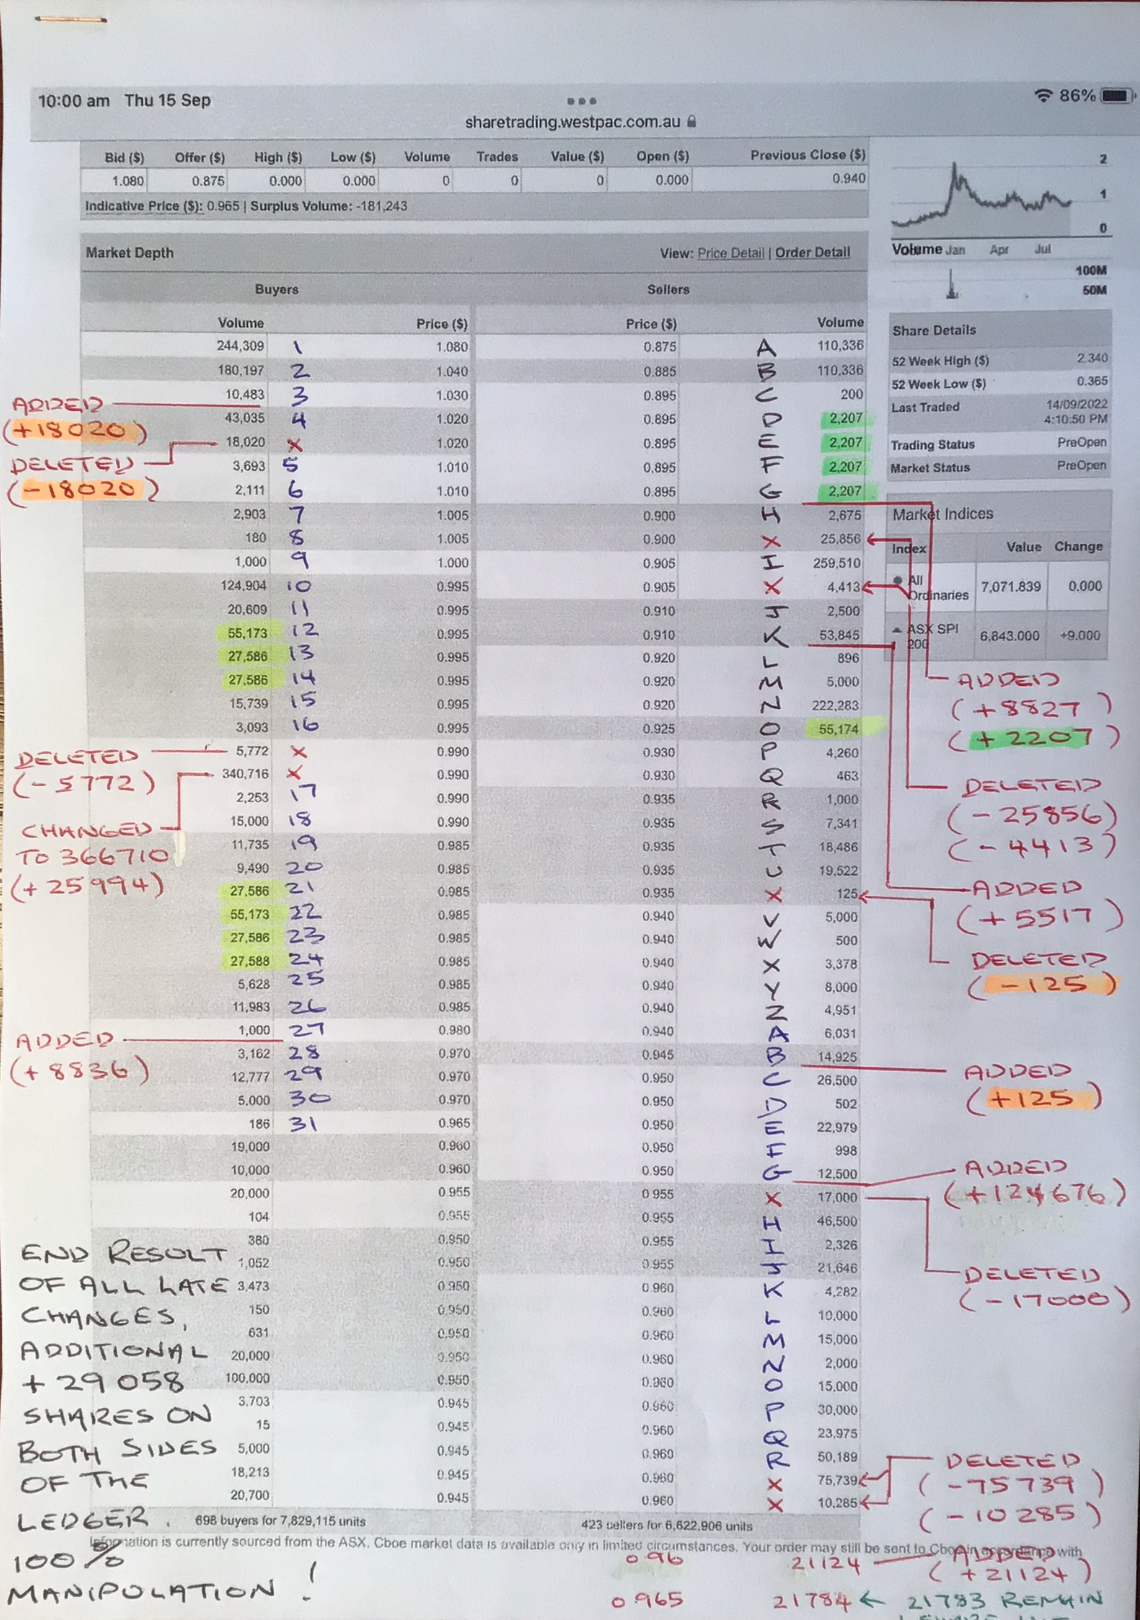 10:00 am Thu 15 Sep
86%
sharetrading.westpac.com.au
Bid ($) Offer ($) High ($) Low ($) Volume Trades Value ($) Open ($) Previous Close ($)
1.080 0.875 0.000 0.000 0 0 0 0.000 0.940
Indicative Price ($): 0.965 | Surplus Volume: -181,243
2
1
0
Volume Jan Apr Jul
100M
50M
Market Depth View: Price Detail | Order Detail
Buyers Sellers
Volume Price ($) Price ($) Volume
244,309 1 1.080 0.875 A 110,336
180,197 2 1.040 0.885 B 110,336
10,483 3 1.030 0.895 C 200
43,035 4 1.020 0.895 D 2,207
18,020 x 1.020 0.895 E 2,207
3,693 5 1.010 0.895 F 2,207
2,111 6 1.010 0.895 G 2,207
2,903 7 1.005 0.900 H 2,675
180 8 1.005 0.900 X 25,856
1,000 9 1.000 0.905 I 259,510
124,904 10 0.995 0.905 X 4,413
20,609 11 0.995 0.910 J 2,500
55,173 12 0.995 0.910 K 53,845
27,586 13 0.995 0.920 L 896
27,586 14 0.995 0.920 M 5,000
15,739 15 0.995 0.920 N 222,283
3,093 16 0.995 0.925 O 55,174
5,772 x 0.990 0.930 P 4,260
340,716 x 0.990 0.930 Q 463
2,253 17 0.990 0.935 R 1,000
15,000 18 0.990 0.935 S 7,341
11,735 19 0.985 0.935 T 18,486
9,490 20 0.985 0.935 U 19,522
27,586 21 0.985 0.935 X 125
55,173 22 0.985 0.940 V 5,000
27,586 23 0.985 0.940 W 500
27,588 24 0.985 0.940 X 3,378
5,628 25 0.985 0.940 Y 8,000
11,983 26 0.985 0.940 Z 4,951
1,000 27 0.980 0.940 A 6,031
3,162 28 0.970 0.945 B 14,925
12,777 29 0.970 0.950 C 26,500
5,000 30 0.970 0.950 D 502
186 31 0.965 0.950 E 22,979
19,000 0.960 0.950 F 998
10,000 0.960 0.950 G 12,500
20,000 0.955 0.955 X 17,000
104 0.955 0.955 H 46,500
380 0.950 0.955 I 2,326
1,052 0.950 0.955 J 21,646
3,473 0.950 0.960 K 4,282
150 0.950 0.960 L 10,000
631 0.950 0.960 M 15,000
20,000 0.950 0.960 N 2,000
100,000 0.950 0.960 O 15,000
3,703 0.945 0.960 P 30,000
15 0.945 0.960 Q 23,975
5,000 0.945 0.960 R 50,189
18,213 0.945 0.960 X 75,739
20,700 0.945 0.960 X 10,285
698 buyers for 7,829,115 units 423 sellers for 6,622,906 units
Information is currently sourced from the ASX. Cboe market data is available only in limited circumstances. Your order may still be sent to Cboe in accordance with
0.96 21124
0.965 21784 ← 21783 REMAIN
Share Details
52 Week High ($) 2.340
52 Week Low ($) 0.365
Last Traded 14/09/2022
4:10:50 PM
Trading Status PreOpen
Market Status PreOpen
Market Indices
Index Value Change
All Ordinaries 7,071.839 0.000
ASX SPI 200 6,843.000 +9.000
ADDED
(+18020)
DELETED
(-18020)
DELETED
(-5772)
CHANGED
TO 366710
(+25994)
ADDED
(+8836)
END RESULT
OF ALL LATE
CHANGES,
ADDITIONAL
+29058
SHARES ON
BOTH SIDES
OF THE
LEDGER.
100%
MANIPULATION!
ADDED
(+8827)
(+2207)
DELETED
(-25856)
(-4413)
ADDED
(+5517)
DELETED
(-125)
ADDED
(+125)
ADDED
(+124676)
DELETED
(-17000)
DELETED
(-75739)
(-10285)
ADDED
(+21124)